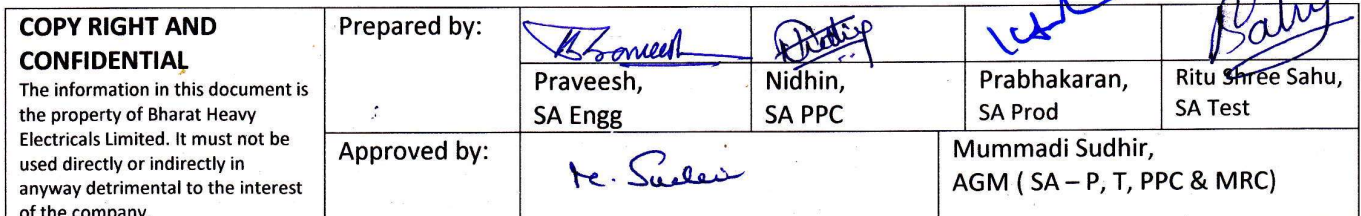 COPY RIGHT AND
CONFIDENTIAL
The information in this document is
the property of Bharat Heavy
Electricals Limited. It must not be
used directly or indirectly in
anyway detrimental to the interest
of the company.
Prepared by:
Praveesh,
SA Engg
Nidhin,
SA PPC
Prabhakaran,
SA Prod
Sahu
Ritu Shree Sahu,
SA Test
Approved by:
Mummadi Sudhir,
AGM ( SA – P, T, PPC & MRC)